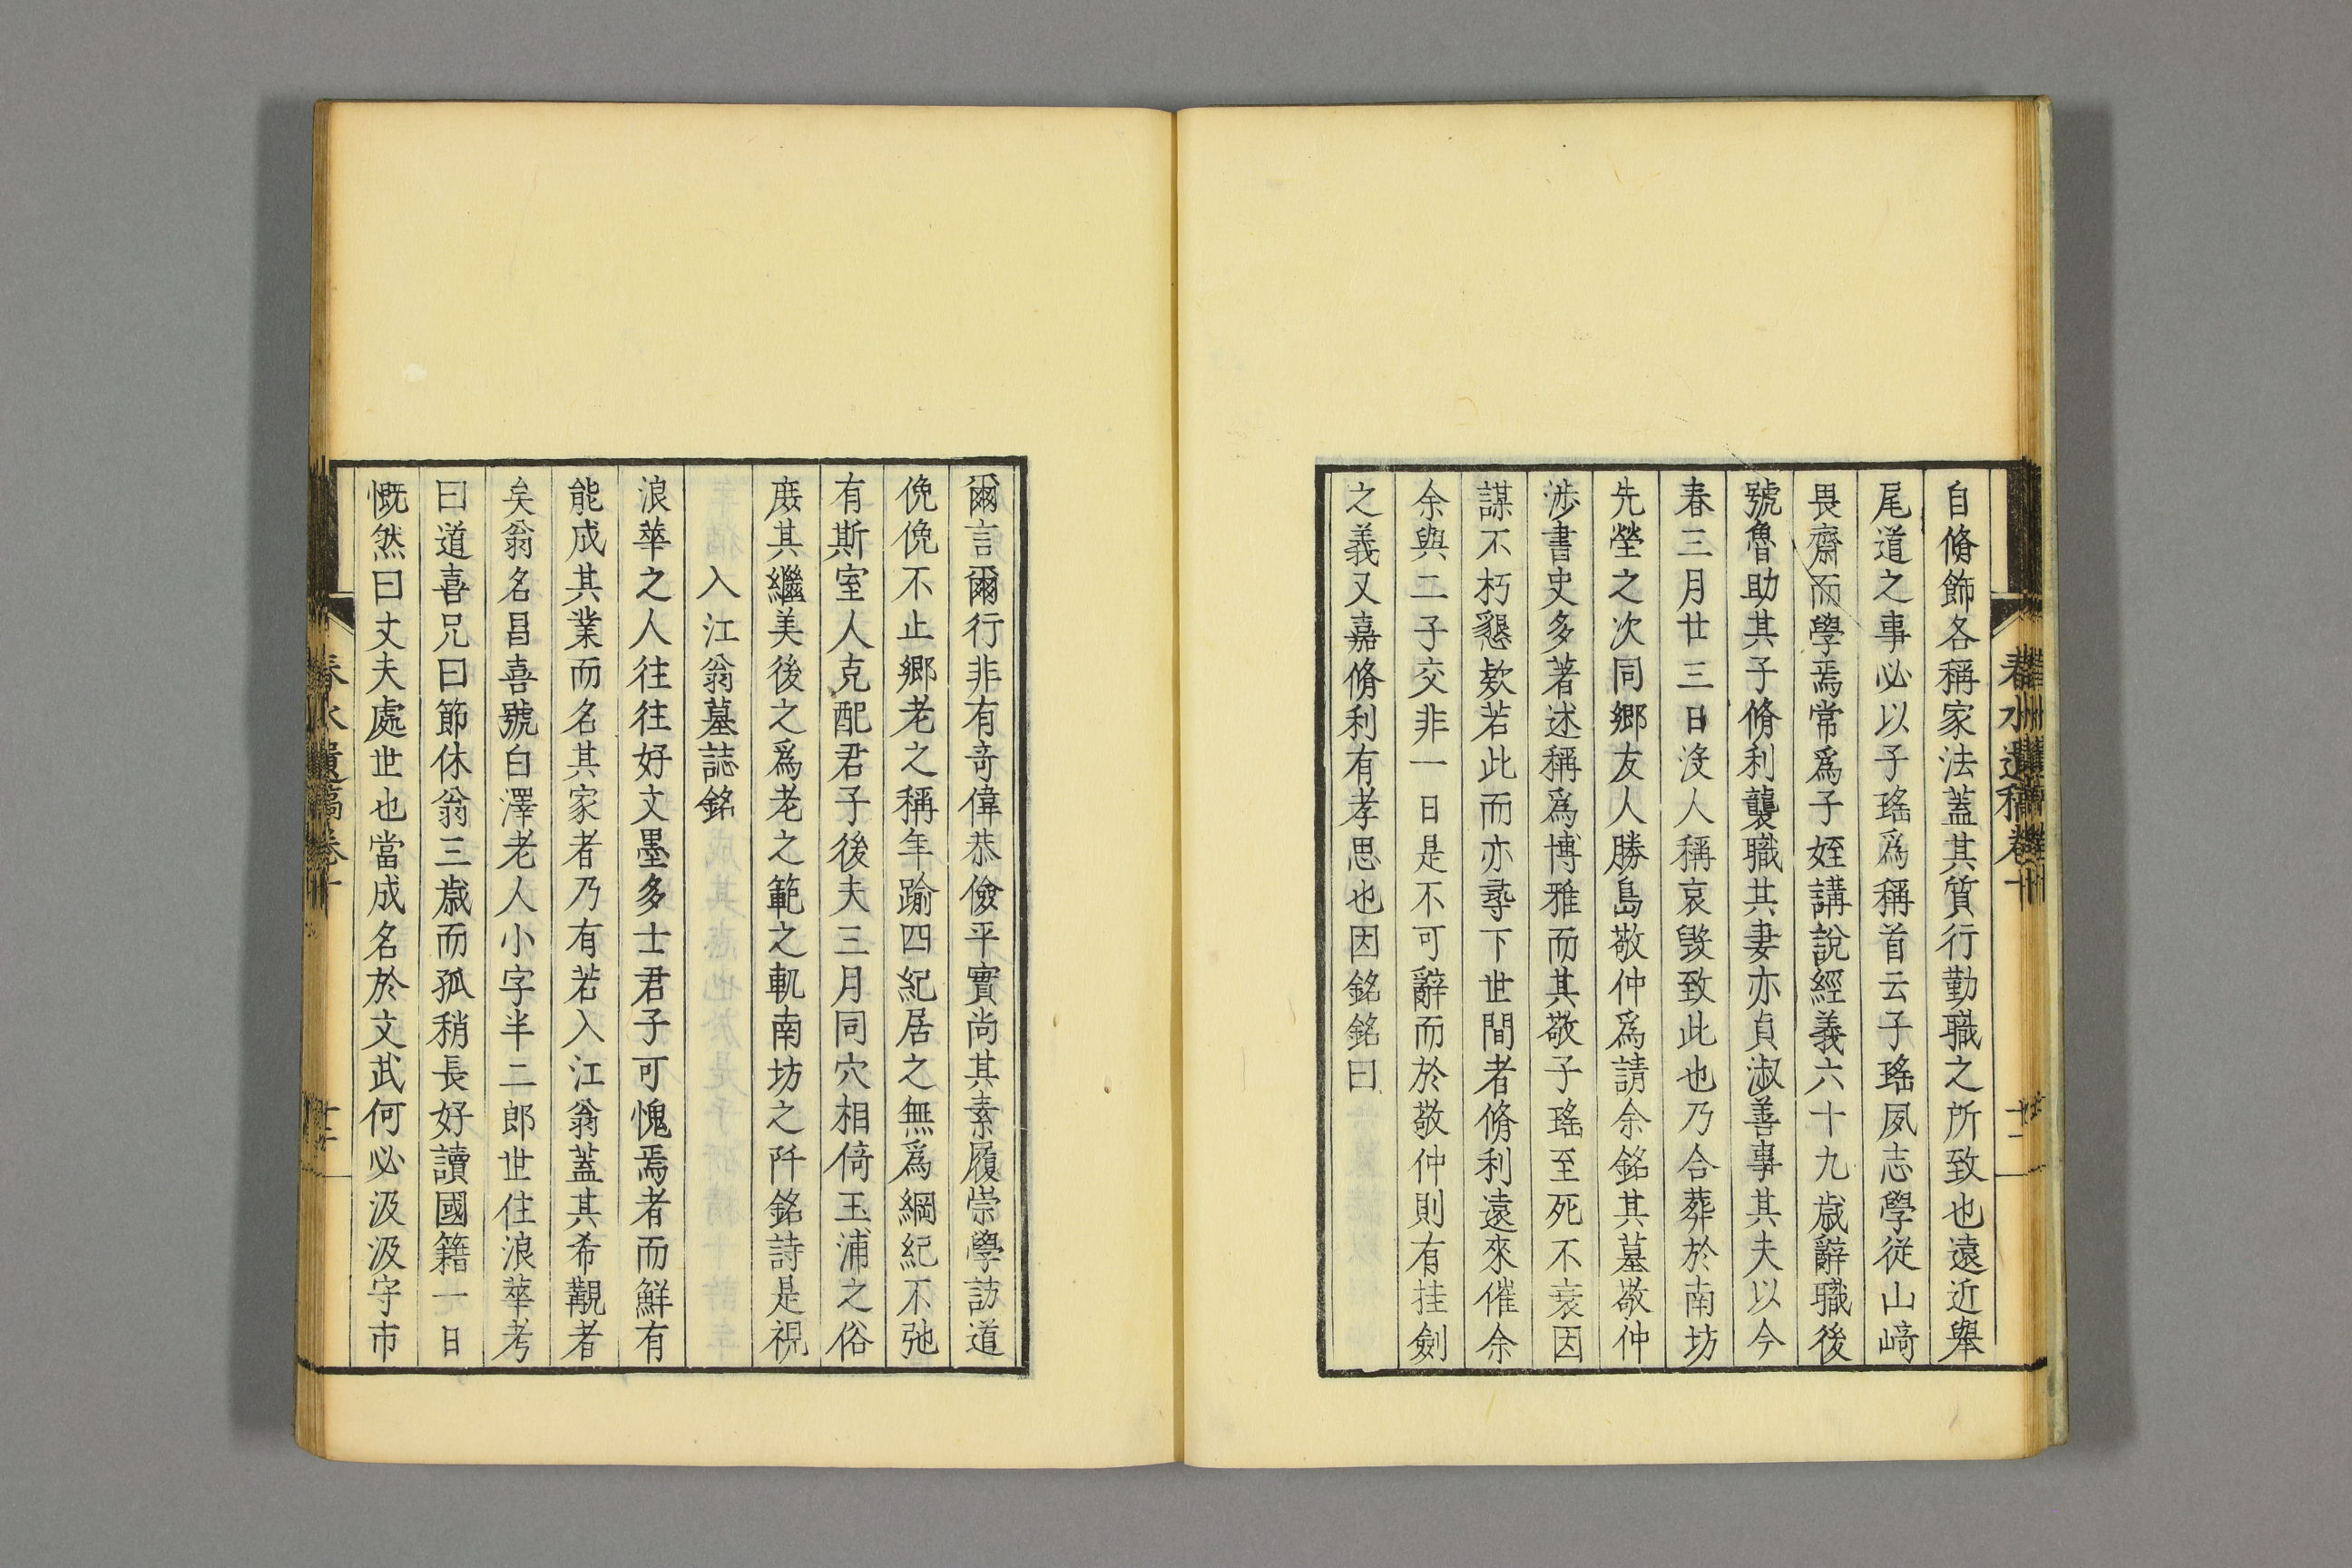 自脩飾各稱家法蓋其質行勤職之所致也遠近舉
尾道之事必以子瑤爲稱首云子瑤夙志學從山﨑
畏齋而學焉常爲子姪講說經義六十九歳辭職後
號魯助其子脩利襲職其妻亦貞淑善事其夫以今
春三月廿三日沒人稱哀毀致此也乃合葬於南坊
先塋之次同鄉友人勝島敬仲爲請余銘其墓敬仲
渉書史多著述稱爲博雅而其敬子瑤至死不衰因
謀不朽懇欸若此而亦尋下世間者脩利遠來催余
余與二子交非一日是不可辭而於敬仲則有挂劍
之義又嘉脩利有孝思也因銘銘曰
春水遺稿卷十
十二
爾言爾行非有奇偉恭儉平實尚其素履崇學訪道
俛俛不止鄉老之稱年踰四紀居之無爲綱紀不弛
有斯室人克配君子後夫三月同穴相倚玉浦之俗
庶其繼美後之爲老之範之軌南坊之阡銘詩是視
入江翁墓誌銘
浪華之人往往好文墨多士君子可愧焉者而鮮有
能成其業而名其家者乃有若入江翁蓋其希覯者
矣翁名昌喜號白澤老人小字半二郎世住浪華考
曰道喜兄曰節休翁三歳而孤稍長好讀國籍一日
慨然曰丈夫處世也當成名於文武何必汲汲守市
春水遺稿卷十